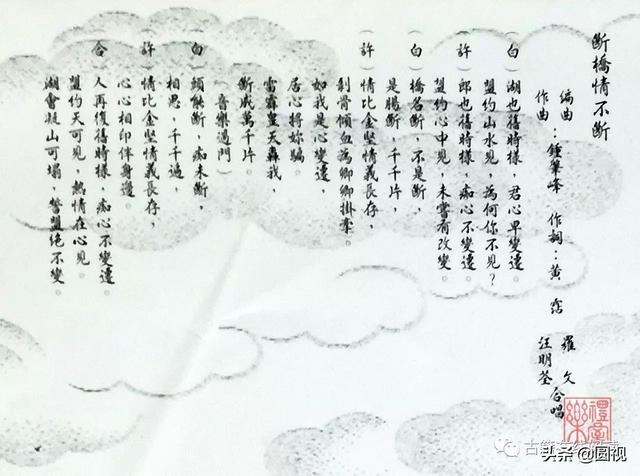 斷橋情不斷
編曲
作曲:鍾肇峰 作詞:黃霑
羅文
汪明荃
合唱
(白)湖也舊時樣,君心早變遷。
盟約山水見,為何你不見?
(許)郎也舊時樣,痴心不變遷。
盟約心中見,未嘗有改變。
(白)橋名斷,不是斷,
是腸斷,千千片,
(許)情比金堅情義長存,
剖骨傾血為卿卿掛牽。
如我是心變遷
居心將妳騙。
雷霹皇天轟我,
斷成萬千片。
(音樂過門)
(白)頭能斷,痴未斷,
相思,千千遍,
(許)情比金堅情義長存,
心心相印伴身邊。
合 人再復舊時樣,痴心不變遷。
盟約天可見,熱情在心見。
湖會山可塌,誓盟絕不變。
头条 @圆视